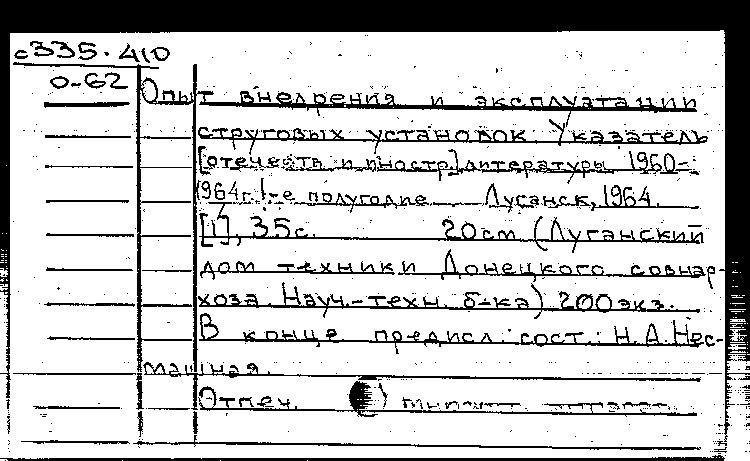 с335.410
О-62
Опыт внедрения и эксплуатации
струговых установок. Указатель
[отечеств. и иностр.] литературы 1960-
1964г. 1-е полугодие. Луганск, 1964.
[1], 35с. 20см (Луганский
дом техники Донецкого совнар-
хоза. Науч.-техн. б-ка) 200 экз.
В конце предисл.: сост.: Н.А.Нес-
машная.
Отпеч.